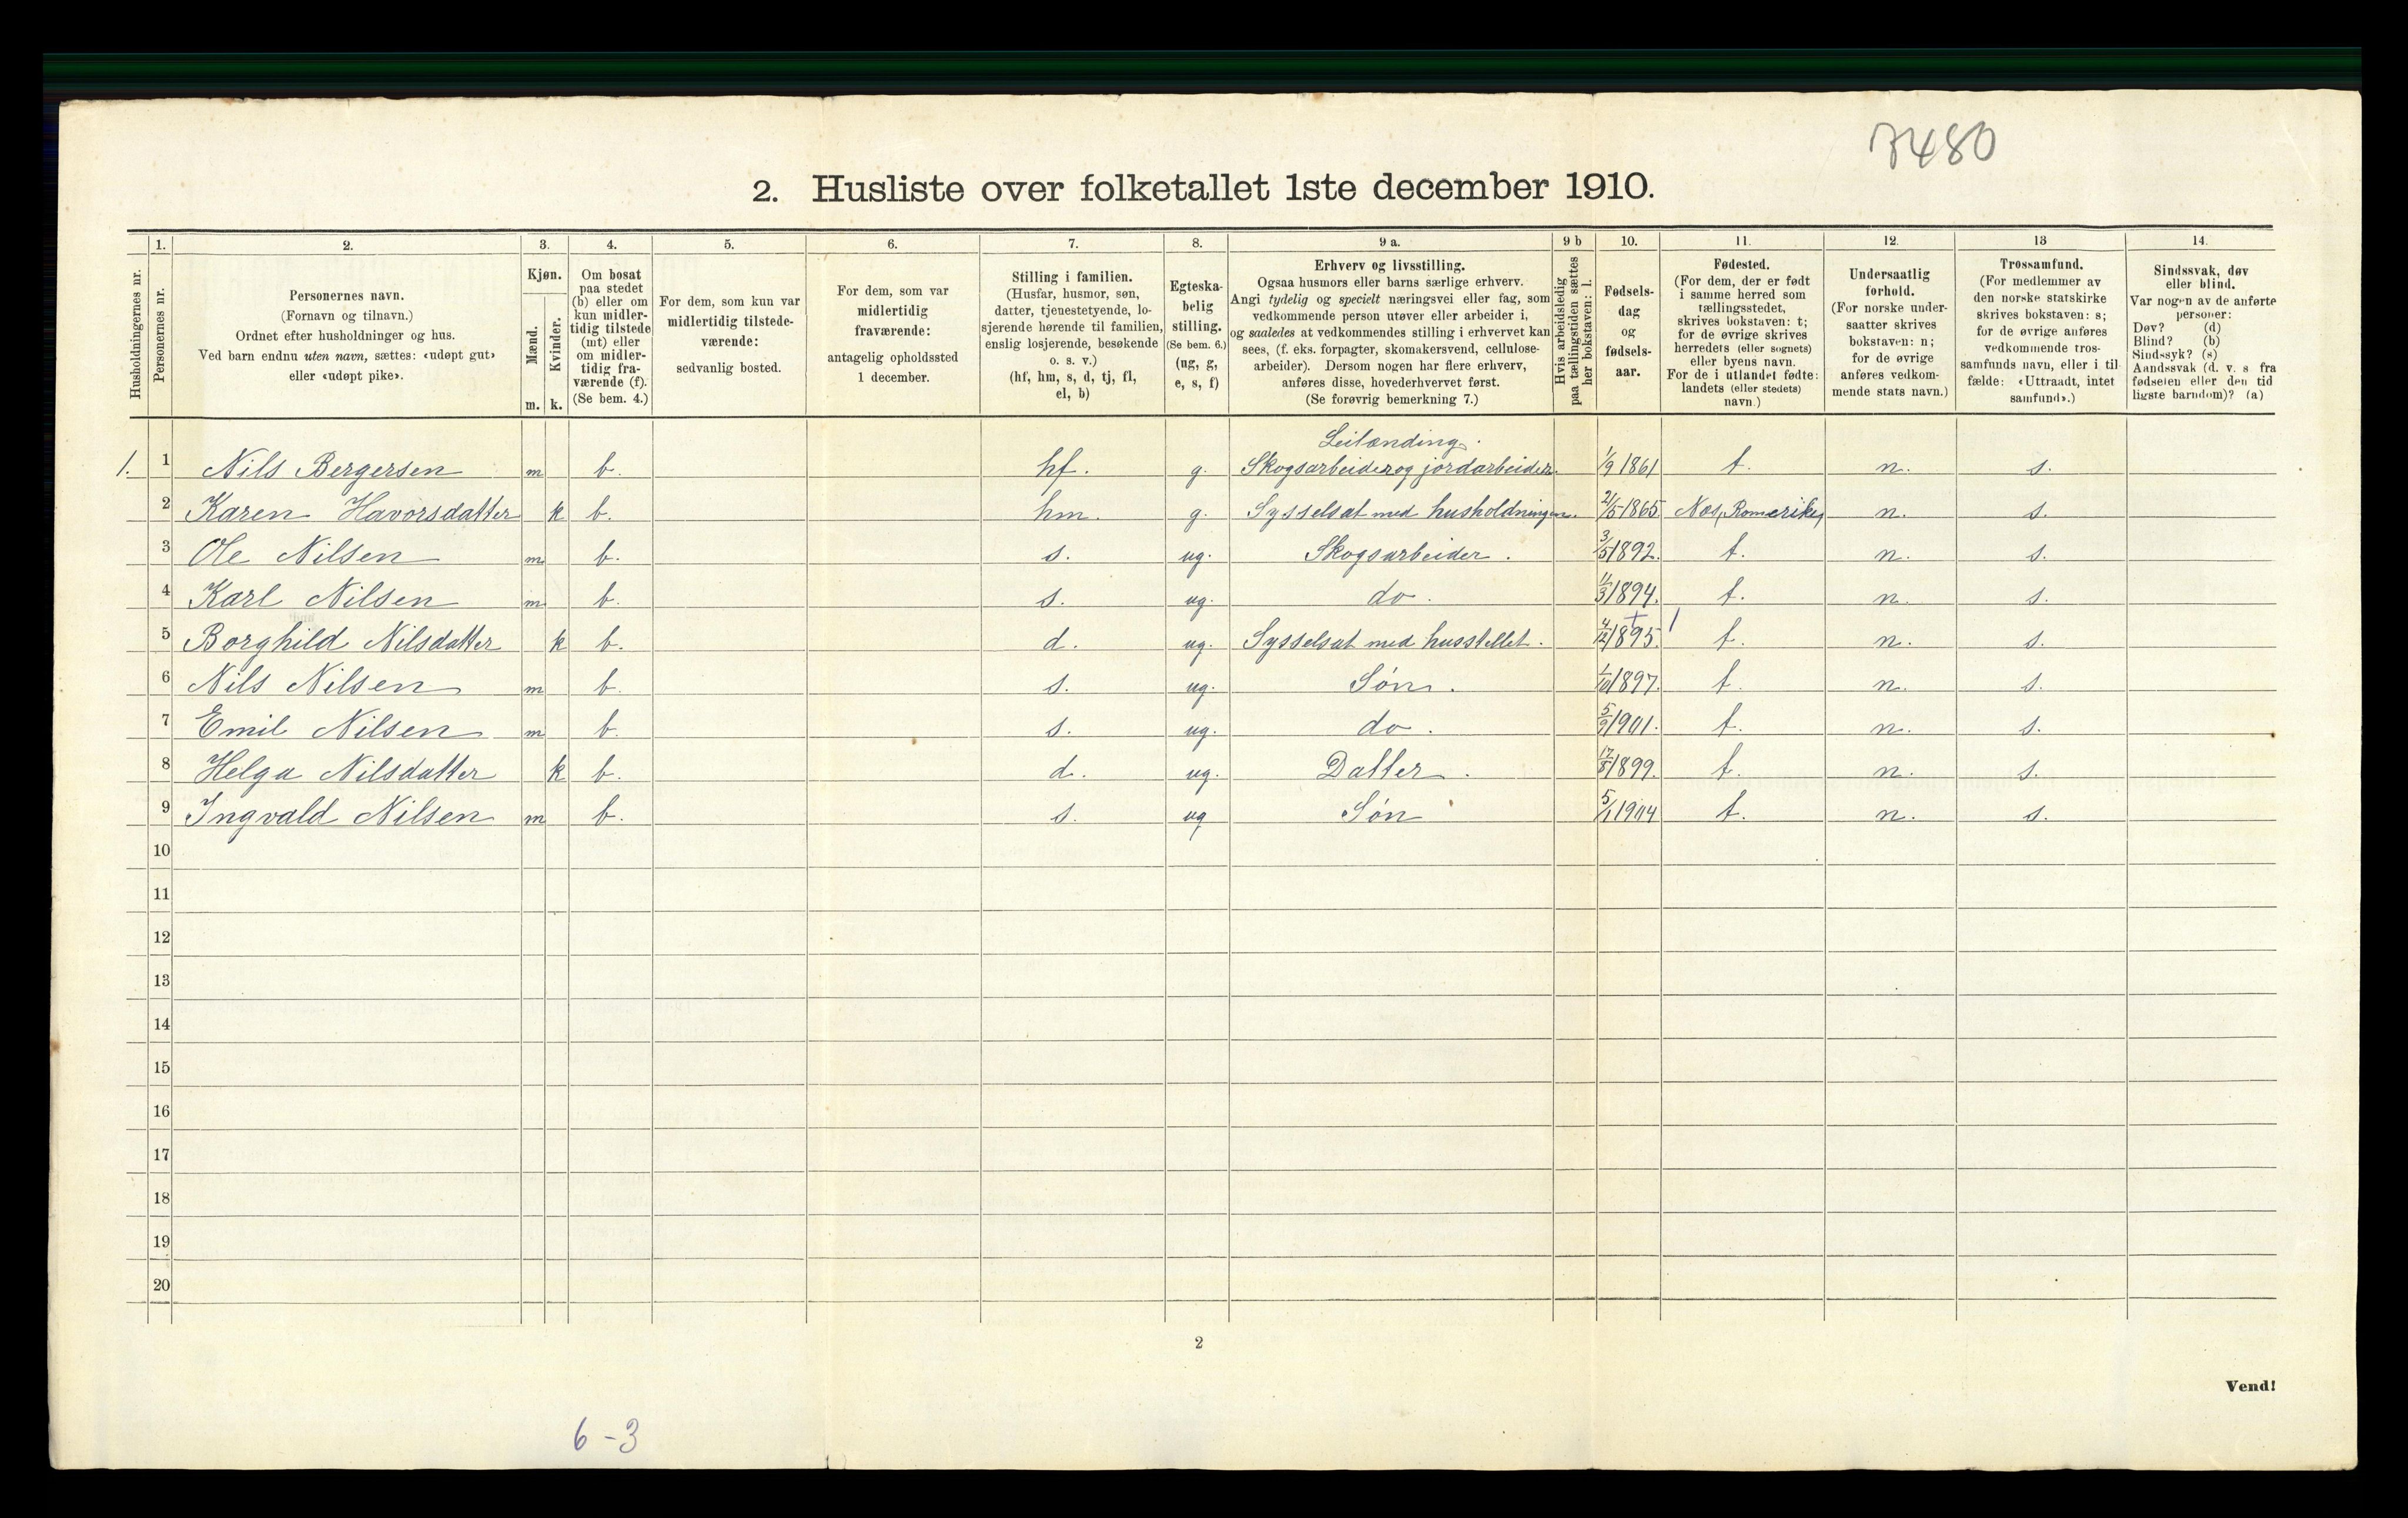 7480
2. Husliste over folketallet 1ste december 1910.
Husholdningernes nr.
1.
Personernes nr.
2.
Personernes navn.
(Fornavn og tilnavn.)
Ordnet efter husholdninger og hus.
Ved barn endnu uten navn, sættes: «udøpt gut»
eller «udøpt pike».
3.
Kjøn.
Mænd.
Kvinder.
m. k.
4.
Om bosat
paa stedet
(b) eller om
kun midler-
tidig tilstede
(mt) eller
om midler-
tidig fra-
værende (f).
(Se bem. 4.)
5.
For dem, som kun var
midlertidig tilstede-
værende:
sedvanlig bosted.
6.
For dem, som var
midlertidig
fraværende:
antagelig opholdssted
1 december.
7.
Stilling i familien.
(Husfar, husmor, søn,
datter, tjenestetyende, lo-
sjerende hørende til familien,
enslig losjerende, besøkende
o. s. v.)
(hf, hm, s, d, tj, fl,
el, b)
8.
Egteska-
belig
stilling.
(Se bem. 6.)
(ug, g,
e, s, f)
9 a.
Erhverv og livsstilling.
Ogsaa husmors eller barns særlige erhverv.
Angi tydelig og specielt næringsvei eller fag, som
vedkommende person utøver eller arbeider i,
og saaledes at vedkommendes stilling i erhvervet kan
sees, (f. eks. forpagter, skomakersvend, cellulose-
arbeider). Dersom nogen har flere erhverv,
anføres disse, hovederhvervet først.
(Se forøvrig bemerkning 7.)
9 b
Hvis arbeidsledig
paa tællingstiden sættes
her bokstaven: l.
10.
Fødsels-
dag
og
fødsels-
aar.
11.
Fødested.
(For dem, der er født
i samme herred som
tællingsstedet,
skrives bokstaven: t;
for de øvrige skrives
herredets (eller sognets)
eller byens navn.
For de i utlandet fødte:
landets (eller stedets)
navn.)
12.
Undersaatlig
forhold.
(For norske under-
saatter skrives
bokstaven: n;
for de øvrige
anføres vedkom-
mende stats navn.)
13
Trossamfund.
(For medlemmer av
den norske statskirke
skrives bokstaven: s;
for de øvrige anføres
vedkommende tros-
samfunds navn, eller i til
fælde: «Uttraadt, intet
samfund».)
14.
Sindssvak, døv
eller blind.
Var nogen av de anførte
personer:
Døv? (d)
Blind? (b)
Sindssyk? (s)
Aandssvak (d. v. s. fra
fødselen eller den tid
ligste barndom)? (a)
Leilænding.
1. 1 Nils Bergersen m b. hf. g. Skogsarbeider og jordarbeider. 1/9 1861 t. n. s.
2 Karen Havorsdatter k b. hm. g. Sysselsat med husholdningen. 21/5 1865 Nes, Romerike, n. s.
3 Ole Nilsen m b. s. ug. Skogsarbeider. 3/5 1892. t. n. s.
4 Karl Nilsen m b. s. ug. do. 11/3 1894. t. n. s.
5 Borghild Nilsdatter k b. d. ug. Sysselsat med husstellet. 4/12 1895. t. n. s.
6 Nils Nilsen m b. s. ug. Søn. 1/10 1897. t. n. s.
7 Emil Nilsen m b. s. ug. do. 5/9 1901. t. n. s.
8 Helga Nilsdatter k b. d. ug. Datter. 17/8 1899. t. n. s.
9 Ingvald Nilsen m b. s. ug Søn 5/1 1904 t. n. s.
10
11
12
13
14
15
16
17
18
19
20
2
Vend!
6 - 3